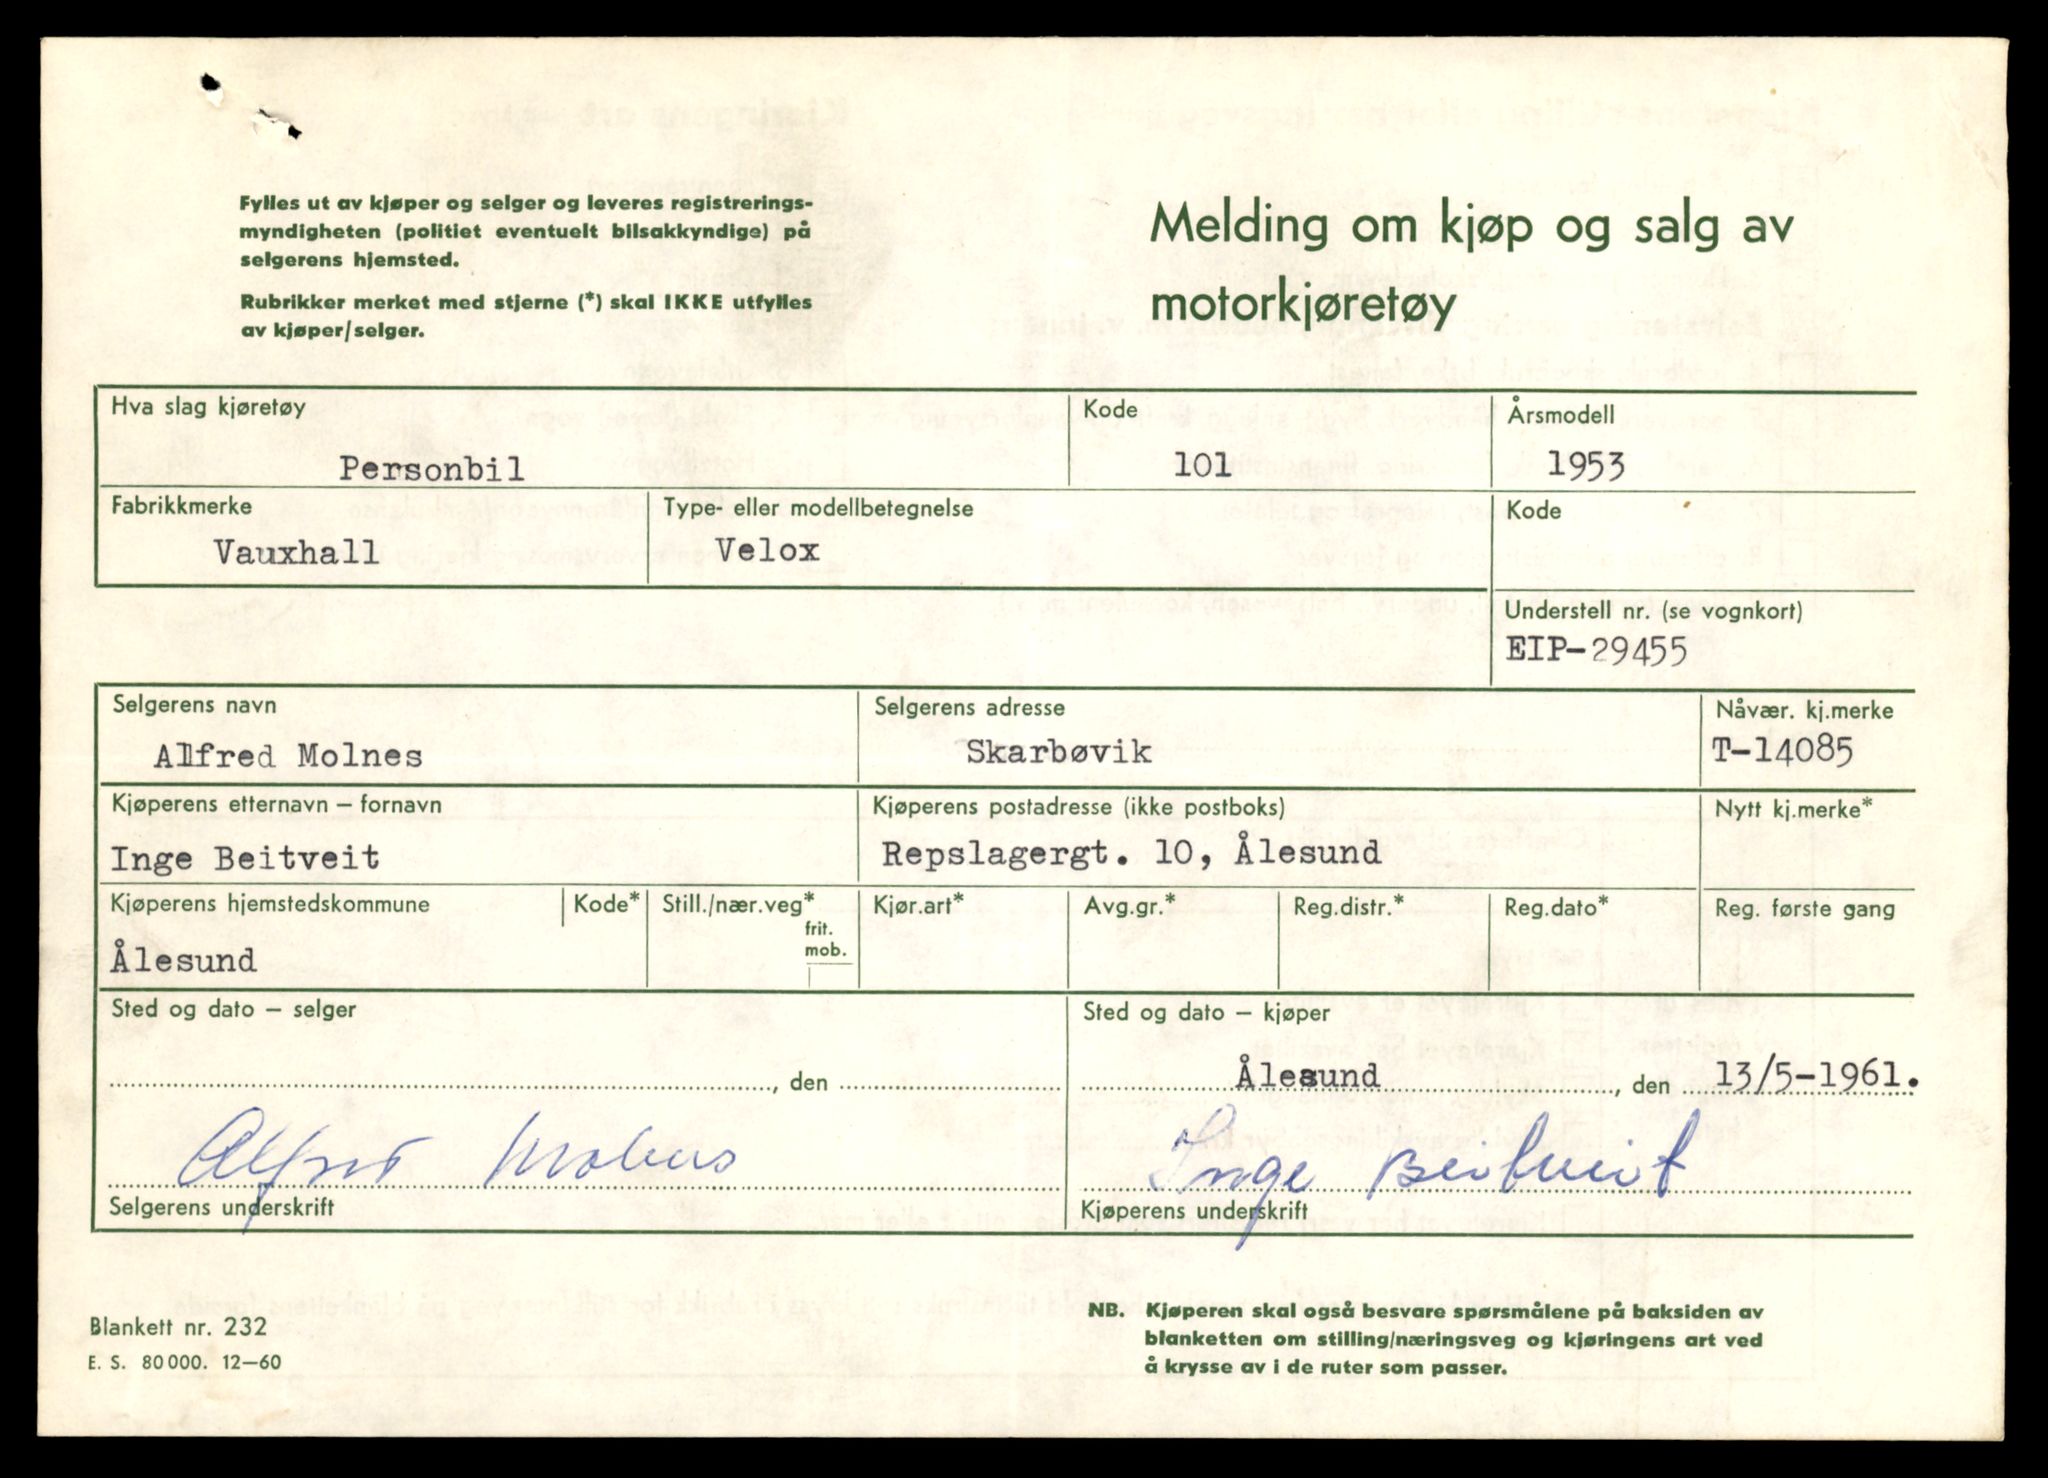 Fylles ut av kjøper og selger og leveres registrerings-
myndigheten (politiet eventuelt bilsakkyndige) på
selgerens hjemsted.
Rubrikker merket med stjerne (*) skal IKKE utfylles
av kjøper/selger.
Melding om kjøp og salg av
motorkjøretøy
Hva slag kjøretøy
Kode
Årsmodell
Personbil
101
1953
Fabrikkmerke
Type- eller modellbetegnelse
Kode
Vauxhall
Velox
Understell nr. (se vognkort)
EIP-29455
Selgerens navn
Selgerens adresse
Nåvær. kj.merke
Alfred Molnes
Skarbøvik
T-14085
Kjøperens etternavn – fornavn
Kjøperens postadresse (ikke postboks)
Nytt kj.merke*
Inge Beitveit
Repslagergt. 10, Ålesund
Kjøperens hjemstedskommune
Kode*
Still./nær.veg*
frit.
mob.
Kjør.art*
Avg.gr.*
Reg.distr.*
Reg.dato*
Reg. første gang
Ålesund
Sted og dato – selger
Sted og dato – kjøper
, den
Ålesund, den 13/5-1961.
Alfred Molnes
Inge Beitveit
Selgerens underskrift
Kjøperens underskrift
Blankett nr. 232
E. S. 80000. 12–60
NB. Kjøperen skal også besvare spørsmålene på baksiden av
blanketten om stilling/næringsveg og kjøringens art ved
å krysse av i de ruter som passer.